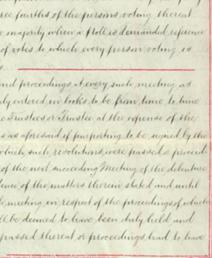 three fourths of the persons voting thereat
majority when a Poll is demanded reference
of votes to which every person voting is
and proceedings at every such meeting as
duly entered in books to be from time to time
Trustees or Trustee at the expense of the
as aforesaid if purporting to be signed by the
which such resolutions were passed or proceed
of the next succeeding Meeting of the debenture
dence of the matters therein stated and until
meeting in respect of the proceedings of which
ll be deemed to have been duly held and
passed thereat or proceedings had to have